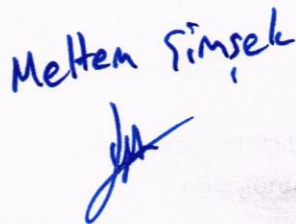 Meltem Şimşek